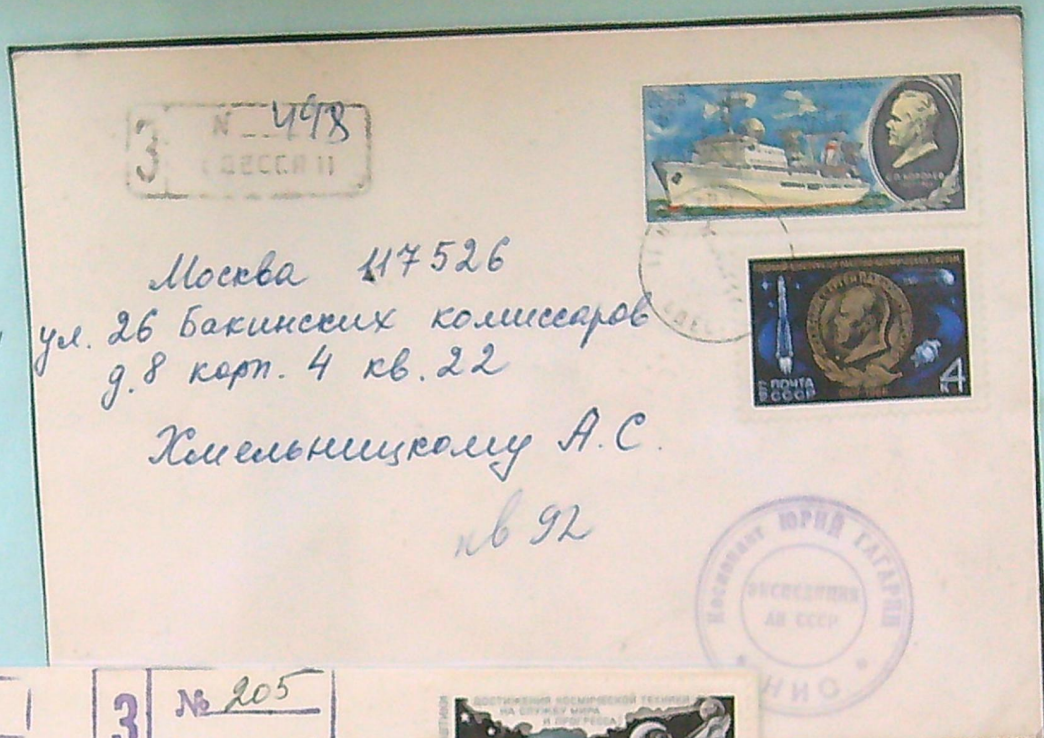 З N 448
ОДЕССА 11
С.П. КОРОЛЕВ
Москва 117526
ул. 26 Бакинских комиссаров
д. 8 корп. 4 кв. 22
Хмельницкому А.С.
кв 92
ПОЧТА
СССР
4 К
Космонавт ЮРИЙ ГАГАРИН
ЭКСПЕДИЦИЯ
АН СССР
НИС
З № 205
ДОСТИЖЕНИЯ КОСМИЧЕСКОЙ ТЕХНИКИ
НА СЛУЖБУ МИРА
И ПРОГРЕССА